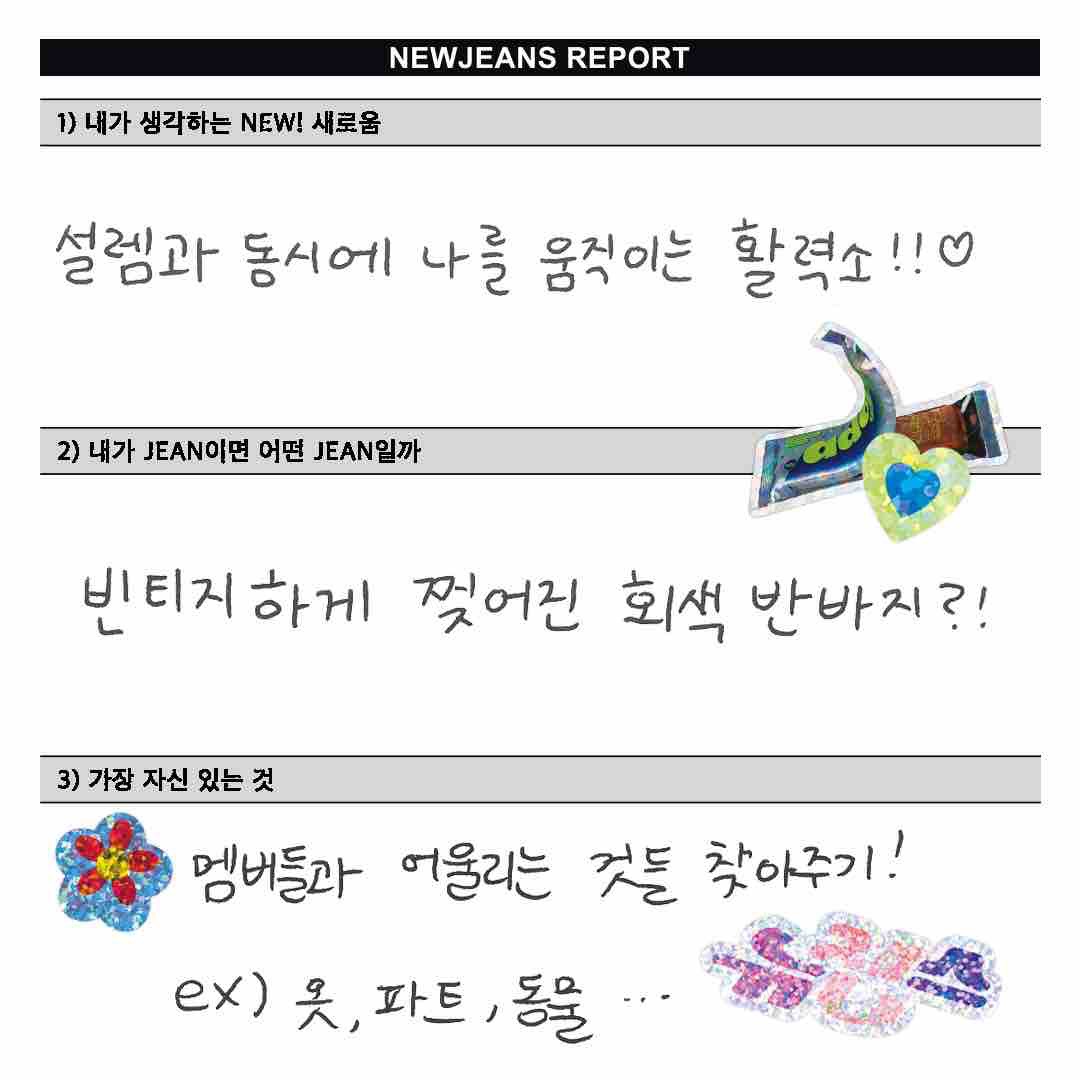 NEWJEANS REPORT
1) 내가 생각하는 NEW! 새로움
설렘과 동시에 나를 움직이는 활력소!!♡
2) 내가 JEAN이면 어떤 JEAN일까
빈티지하게 찢어진 회색 반바지?!
3) 가장 자신 있는 것
멤버들과 어울리는 것들 찾아주기!
ex) 옷, 파트, 동물 ...